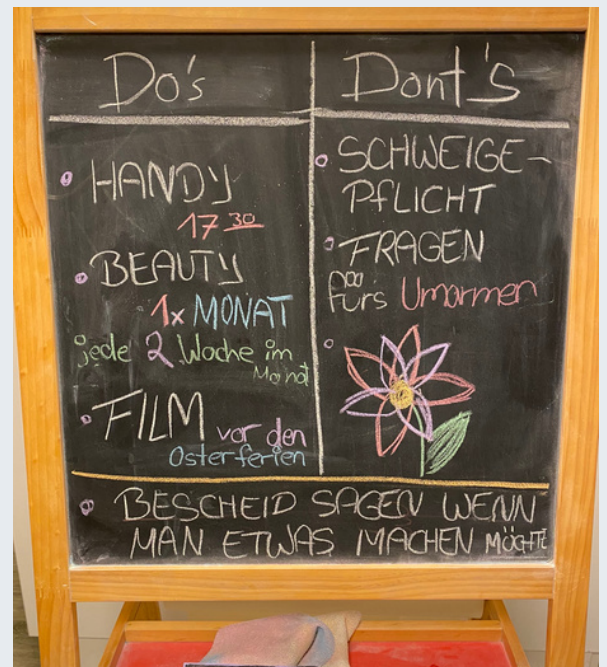 Do's
Dont's
HANDY
17 30
BEAUTY
1x MONAT
jede 2 Woche im
Monat
FILM vor den
Osterferien
SCHWEIGE-
PFLICHT
FRAGEN
fürs Umarmen
BESCHEID SAGEN WENN
MAN ETWAS MACHEN MÖCHTE